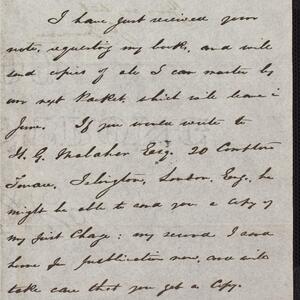 I have just received your
note, requesting my books, and will
send copies of all I can muster by
our next Packet, which will leave in
June. If you would write to
H. G. Malaher Esq. 20 Compton
Terrace, Islington, London, Eng., he
might be able to send you a copy of
my first Charge: my second I send
home for publication now, and will
take care that you get a Copy.